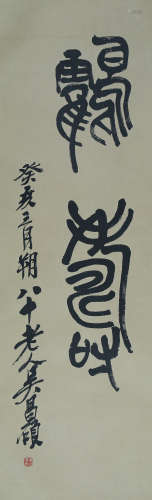 鶴壽
癸亥三月朔八十老人吳昌碩